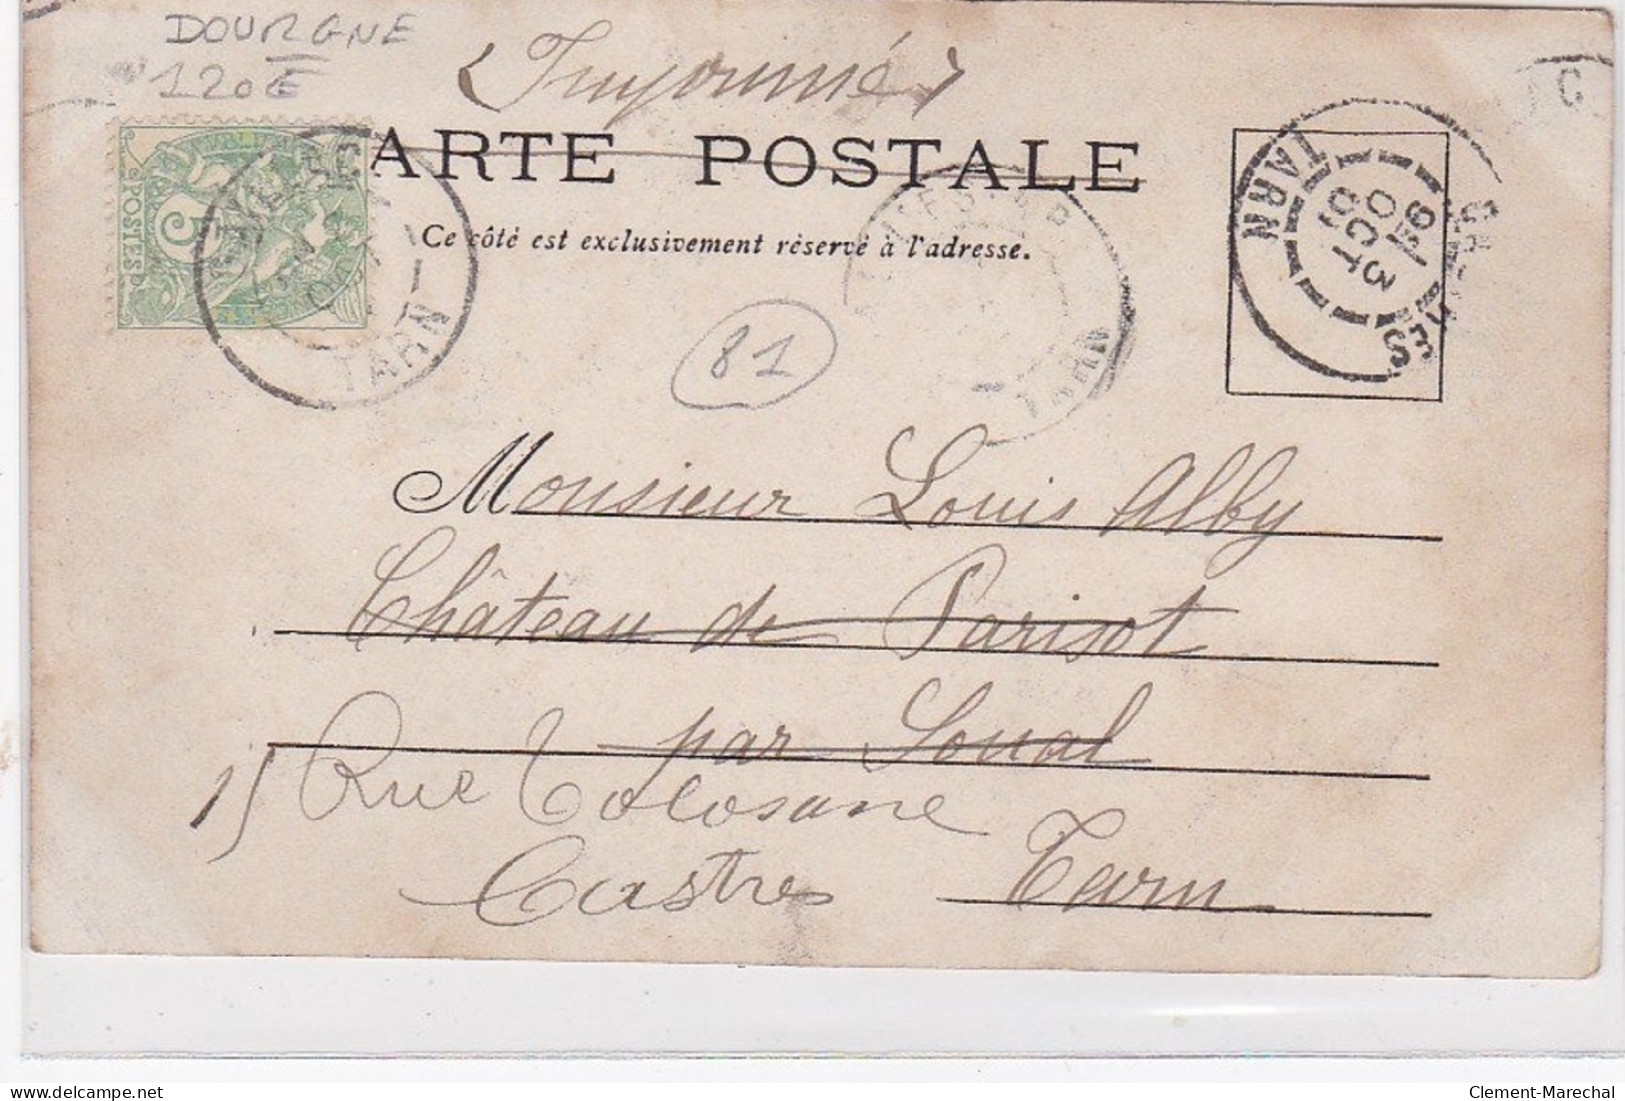 DOURGNE
120€
(Imprimé)
CARTE POSTALE
Ce côté est exclusivement réservé à l'adresse.
POSTES
5
TARN
TARN
81
CASTRES
TARN
9
3 OCT
03
Monsieur Louis Alby
Château de Parisot
par Soual
15 Rue Tolosane
Castres Tarn
Clement-Marechal